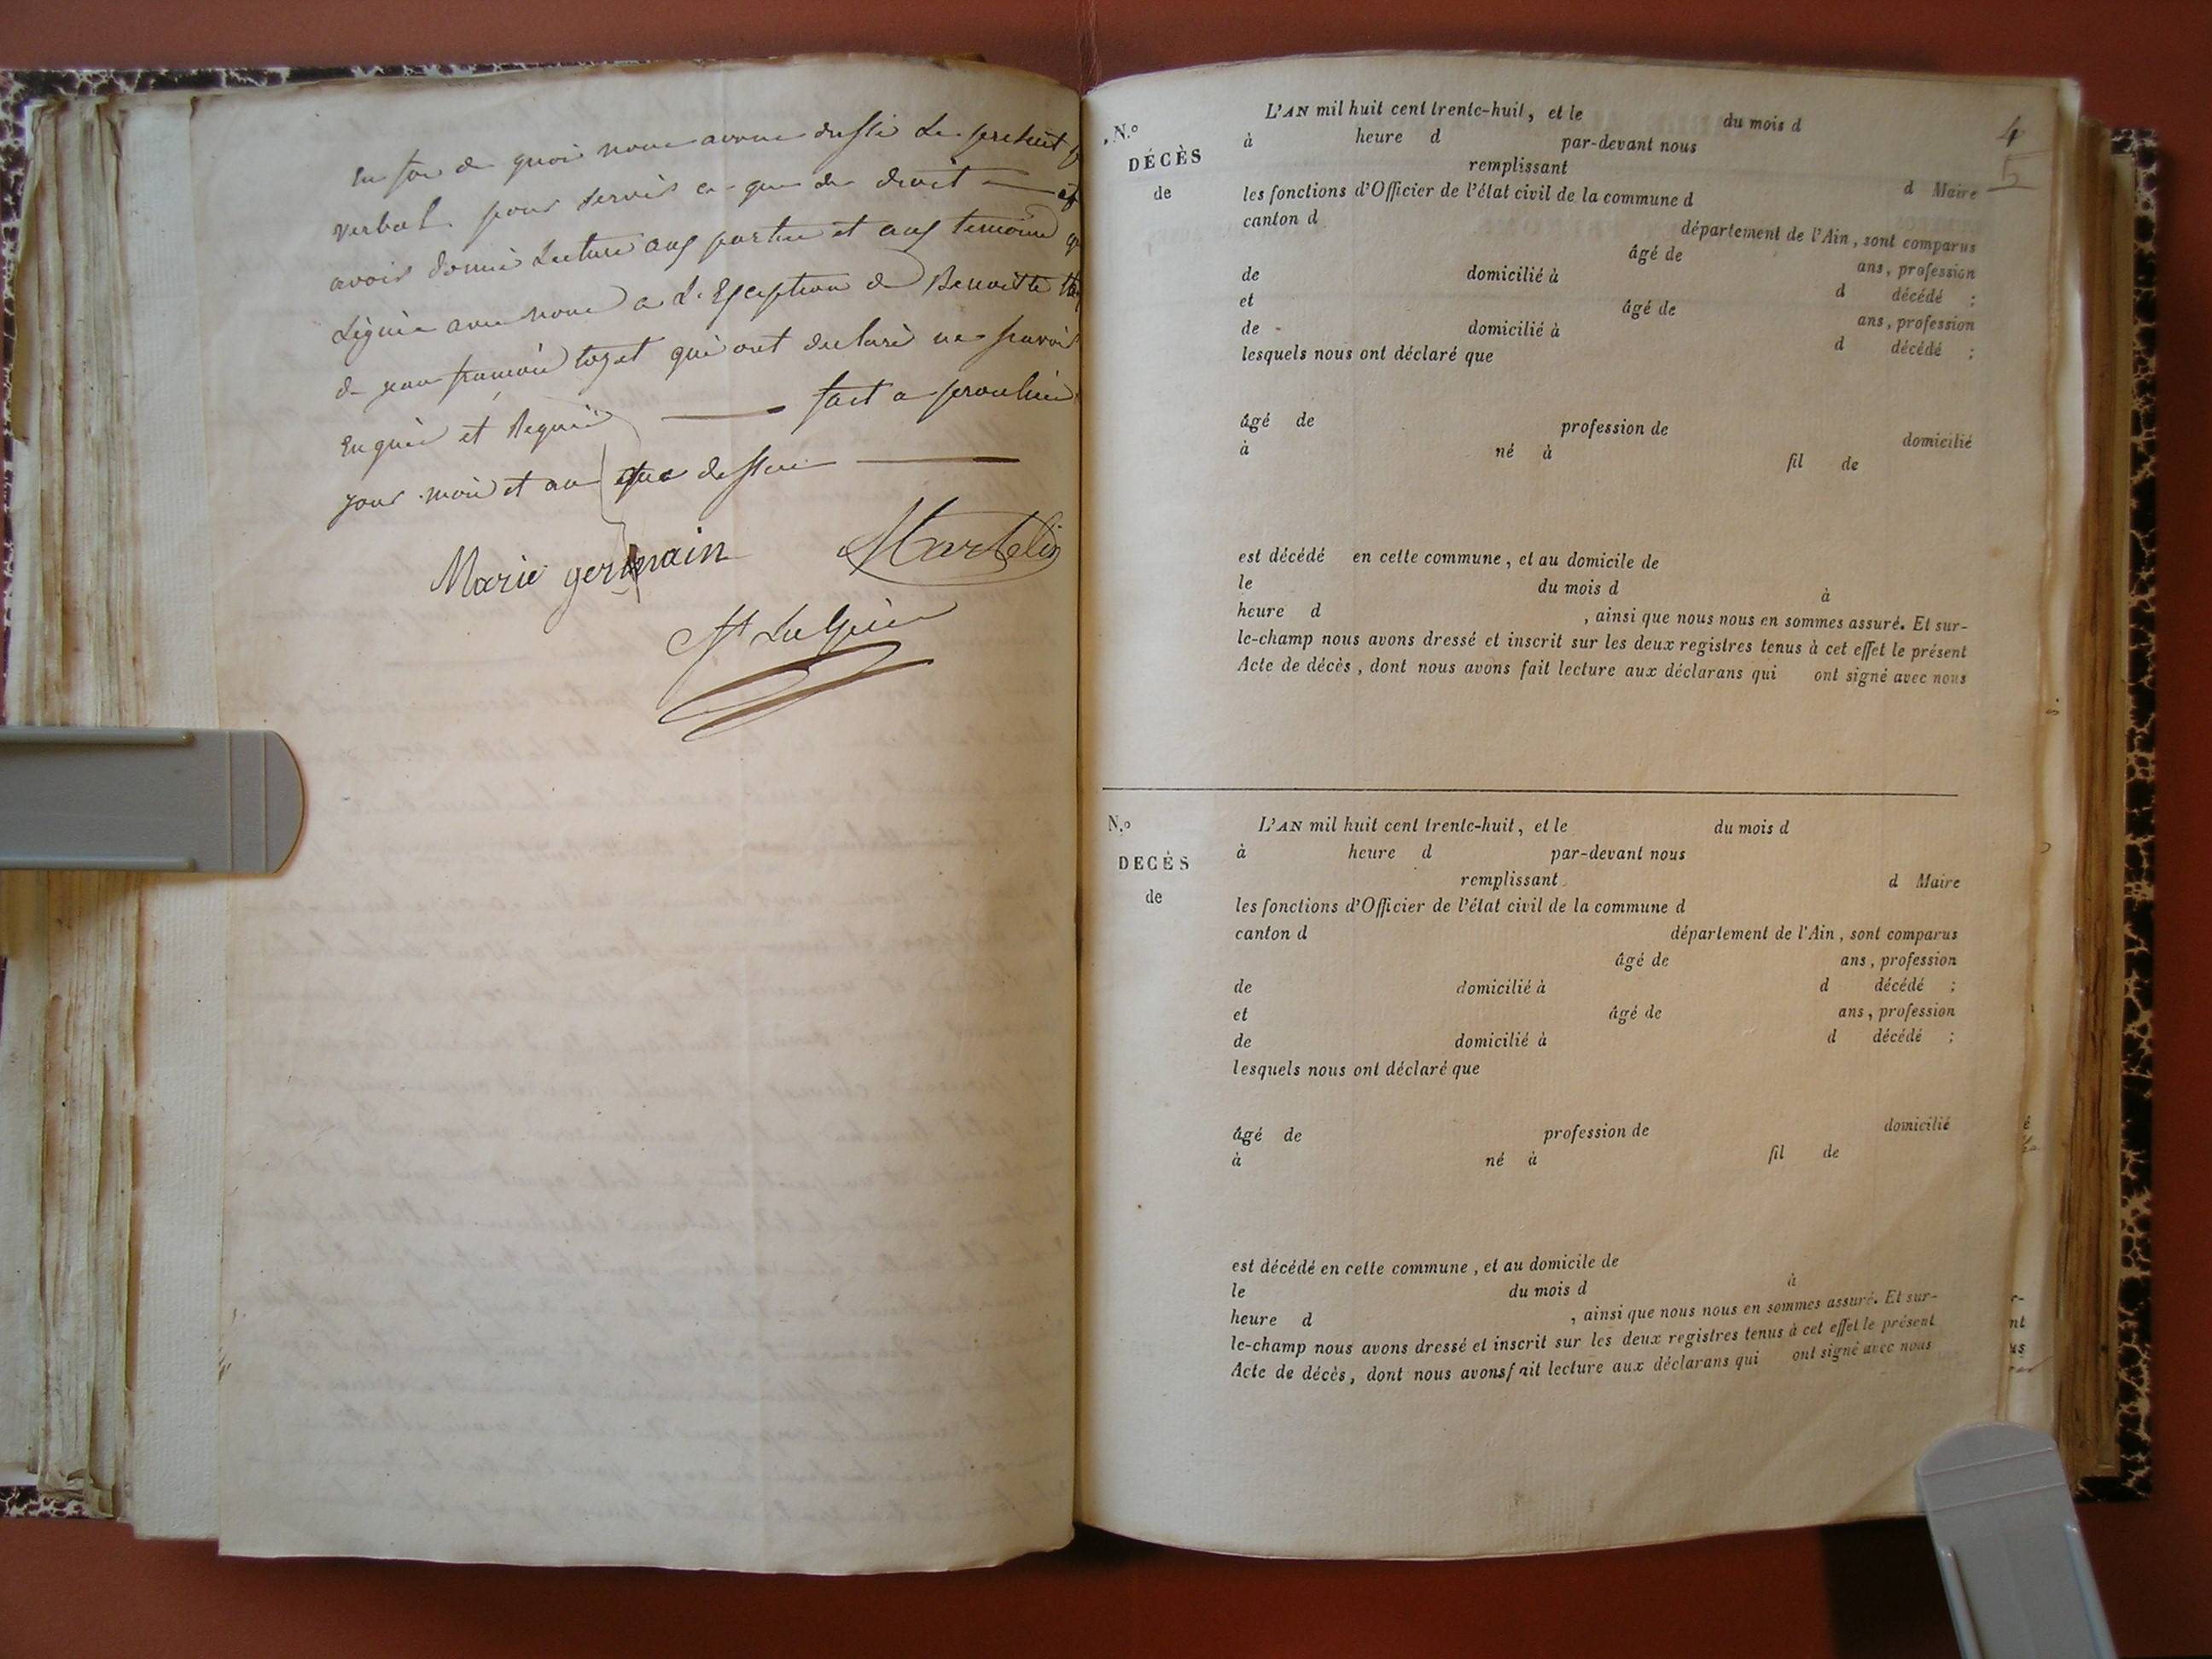 En foi de quoi nous avons dressé le present
verbal pour servir ce que de droit — et
avoir donné Lecture aux parties et aux temoins
signée avec nous a L'Exception de Benoitte
de jean françois tozet qui ont declaré ne savoir
Enquis et Requis — fait a
jour mois et an que dessus —
Marie germain
Martelin
N.º
DÉCÈS
de
L'AN mil huit cent trente-huit, et le du mois d
à heure d par-devant nous
remplissant d Maire
les fonctions d'Officier de l'état civil de la commune d
canton d département de l'Ain, sont comparus
âgé de ans, profession
de domicilié à d décédé ;
et âgé de ans, profession
de domicilié à d décédé ;
lesquels nous ont déclaré que
âgé de profession de domicilié
à né à fil de
est décédé en cette commune, et au domicile de
le du mois d à
heure d , ainsi que nous nous en sommes assuré. Et sur-
le-champ nous avons dressé et inscrit sur les deux registres tenus à cet effet le présent
Acte de décès, dont nous avons fait lecture aux déclarans qui ont signé avec nous
4
5
N.º
DECÈS
de
L'AN mil huit cent trente-huit, et le du mois d
à heure d par-devant nous
remplissant d Maire
les fonctions d'Officier de l'état civil de la commune d
canton d département de l'Ain, sont comparus
âgé de ans, profession
de domicilié à d décédé ;
et âgé de ans, profession
de domicilié à d décédé ;
lesquels nous ont déclaré que
âgé de profession de domicilié
à né à fil de
est décédé en cette commune, et au domicile de
le du mois d à
heure d , ainsi que nous nous en sommes assuré. Et sur-
le-champ nous avons dressé et inscrit sur les deux registres tenus à cet effet le présent
Acte de décès, dont nous avons fait lecture aux déclarans qui ont signé avec nous